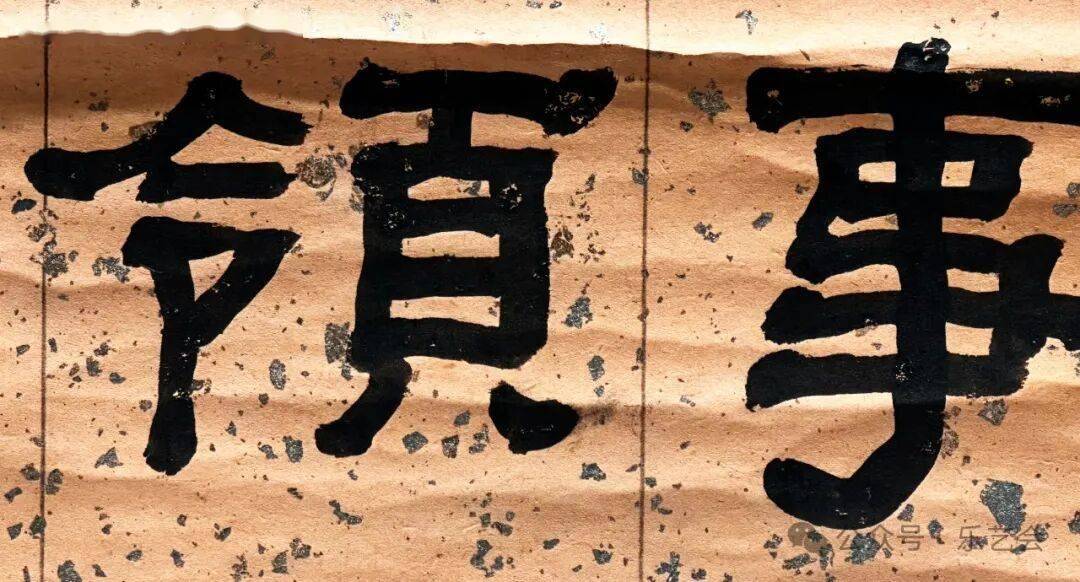 領事
公众号·乐艺会